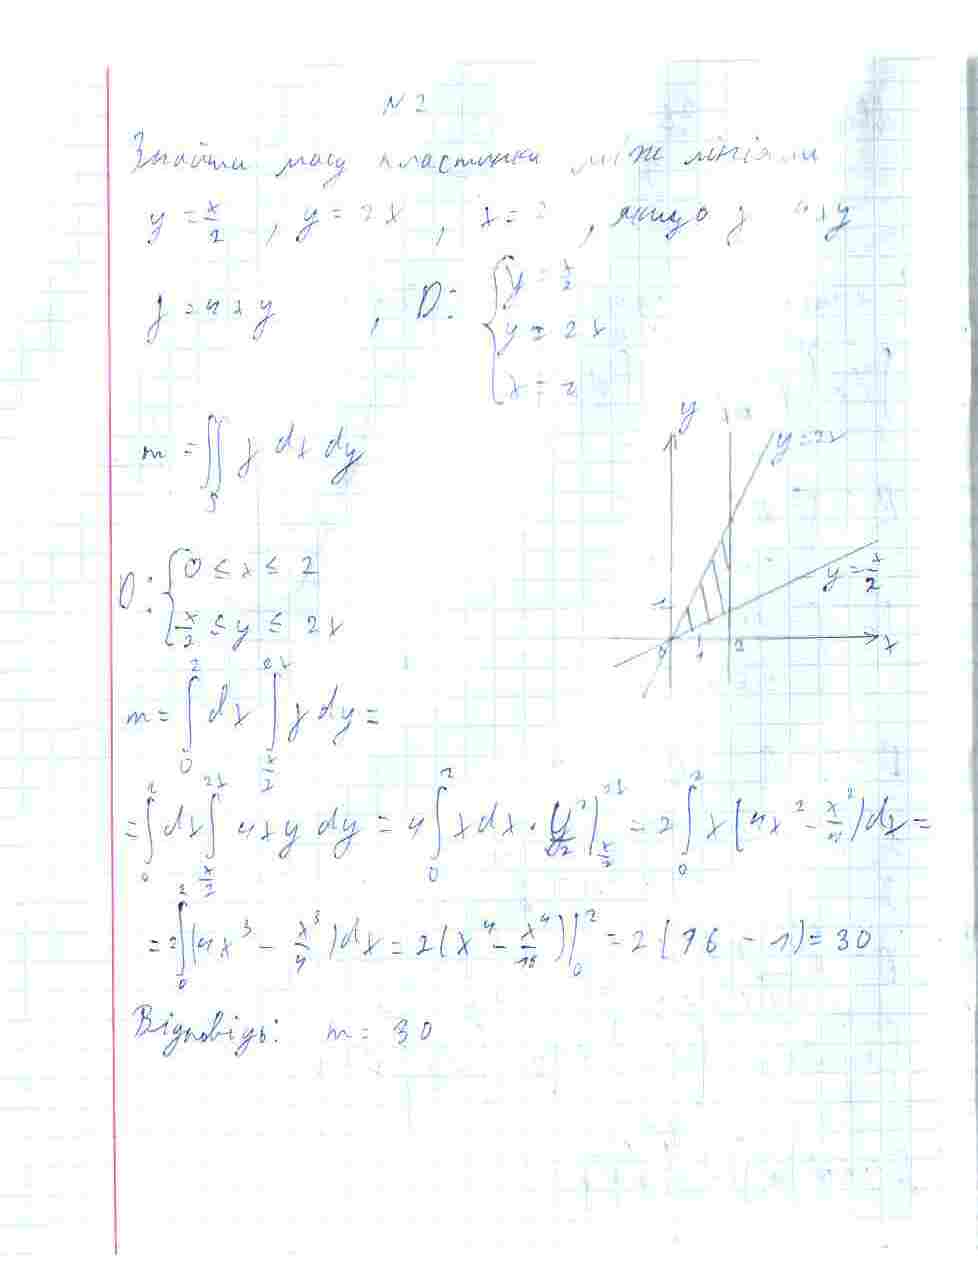 N 2
Знайти масу пластинки між лініями
y = x/2 , y = 2x , x = 2 , якщо γ = 4xy
γ = 4xy , D: { y = x/2
y = 2x
x = 2
m = ∬_D γ dx dy
D: { 0 ≤ x ≤ 2
x/2 ≤ y ≤ 2x
y
y = 2x
y = x/2
1
0 1 2 x
m = ∫_0^2 dx ∫_{x/2}^{2x} γ dy =
= ∫_0^2 dx ∫_{x/2}^{2x} 4xy dy = 4 ∫_0^2 x dx · y²/2 |_{x/2}^{2x} = 2 ∫_0^2 x (4x² - x²/4) dx =
= 2 ∫_0^2 (4x³ - x³/4) dx = 2 (x⁴ - x⁴/16) |_0^2 = 2 (16 - 1) = 30
Відповідь: m = 30